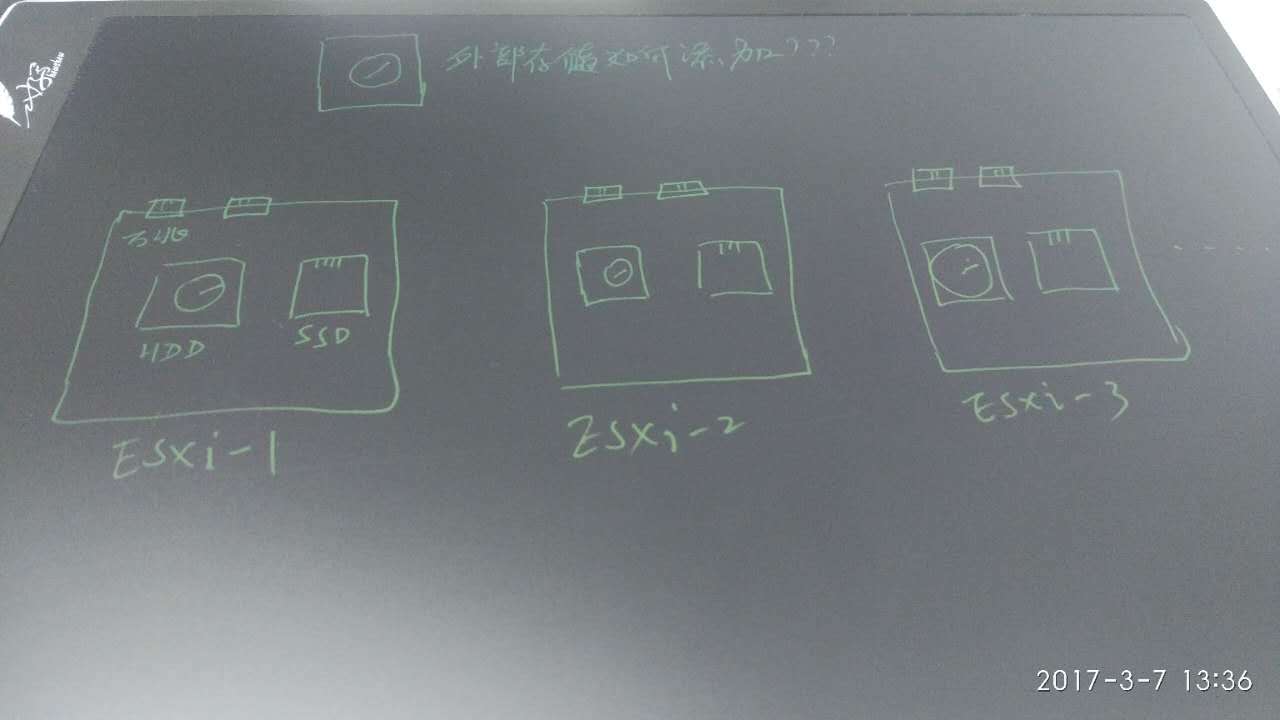 外部存储如何添加???
HDD
SSD
ESXi-1
ESXi-2
ESXi-3
2017-3-7 13:36